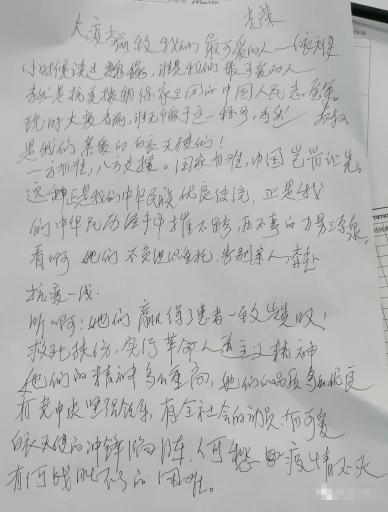 大疫当前致我们最可爱的人—白衣天使
小时候读过魏巍,谁是我们最可爱的人
就是抗美援朝保家卫国的中国人民志愿军
现时大疫当前,谁无愧于这一称号,当然
是我们亲爱的白衣天使们!
一方有难,八方支援。国家有难,中国岂能
这种正是我们中华民族优良传统,正是我
们中华民族千摧不跨,的力量源泉
看啊 她们不负组织重托,告别亲人,奔赴
抗疫一线。
听啊!她们赢得了患者一致赞叹!
救死扶伤,实行革命人道主义精神
她们的精神多么崇高,她们的品质多么优良
有党中央坚强领导,有全社会的动员,有可爱
白衣天使的冲锋陷阵,何愁疫情不灭
有何战胜不了的困难。